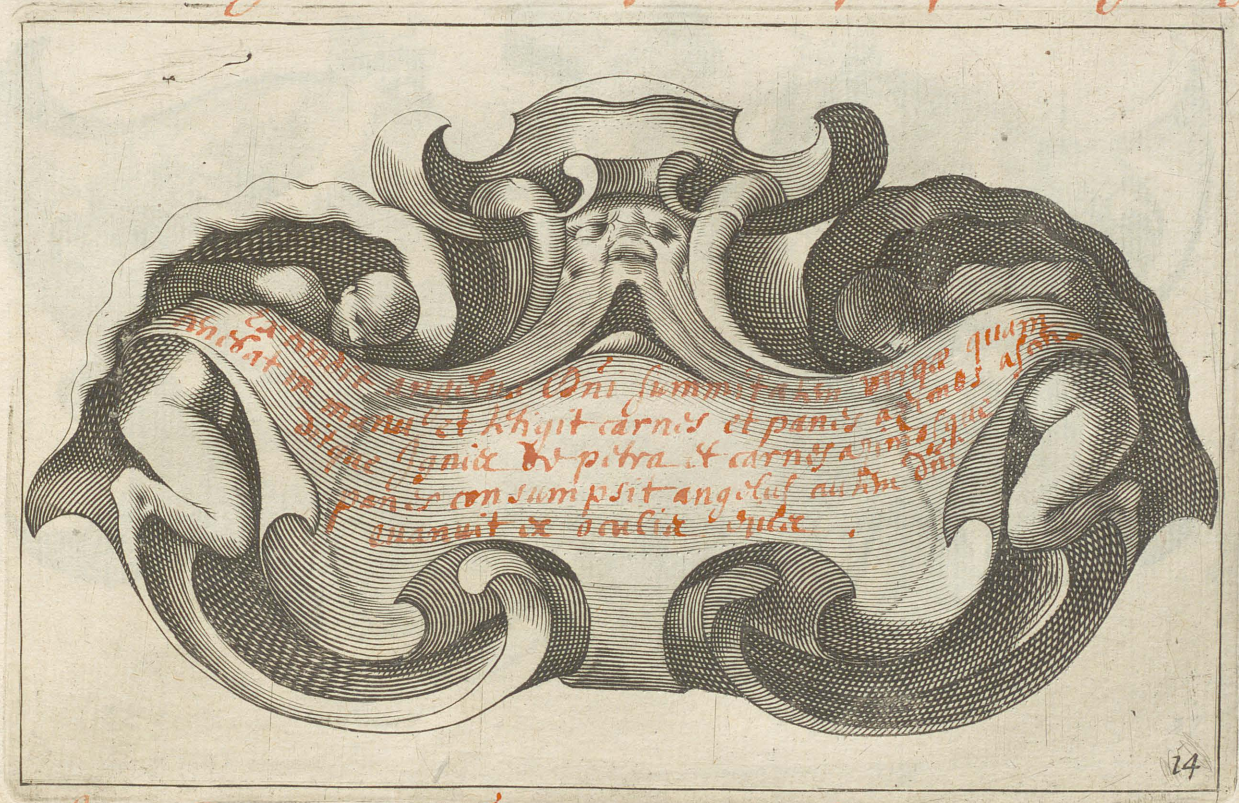 Extendit angelus Dni summitatem virgæ quam
tenebat in manu et tetigit carnes et panes azimos ascen-
ditque ignis de petra et carnes azimosque
panes consumpsit angelus autem Dni
euanuit ex oculis eius .
14